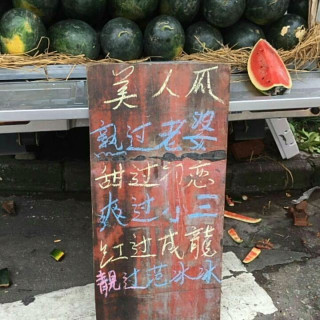 美人瓜
熟过老婆
甜过初恋
爽过小三
红过成龍
靓过范冰冰